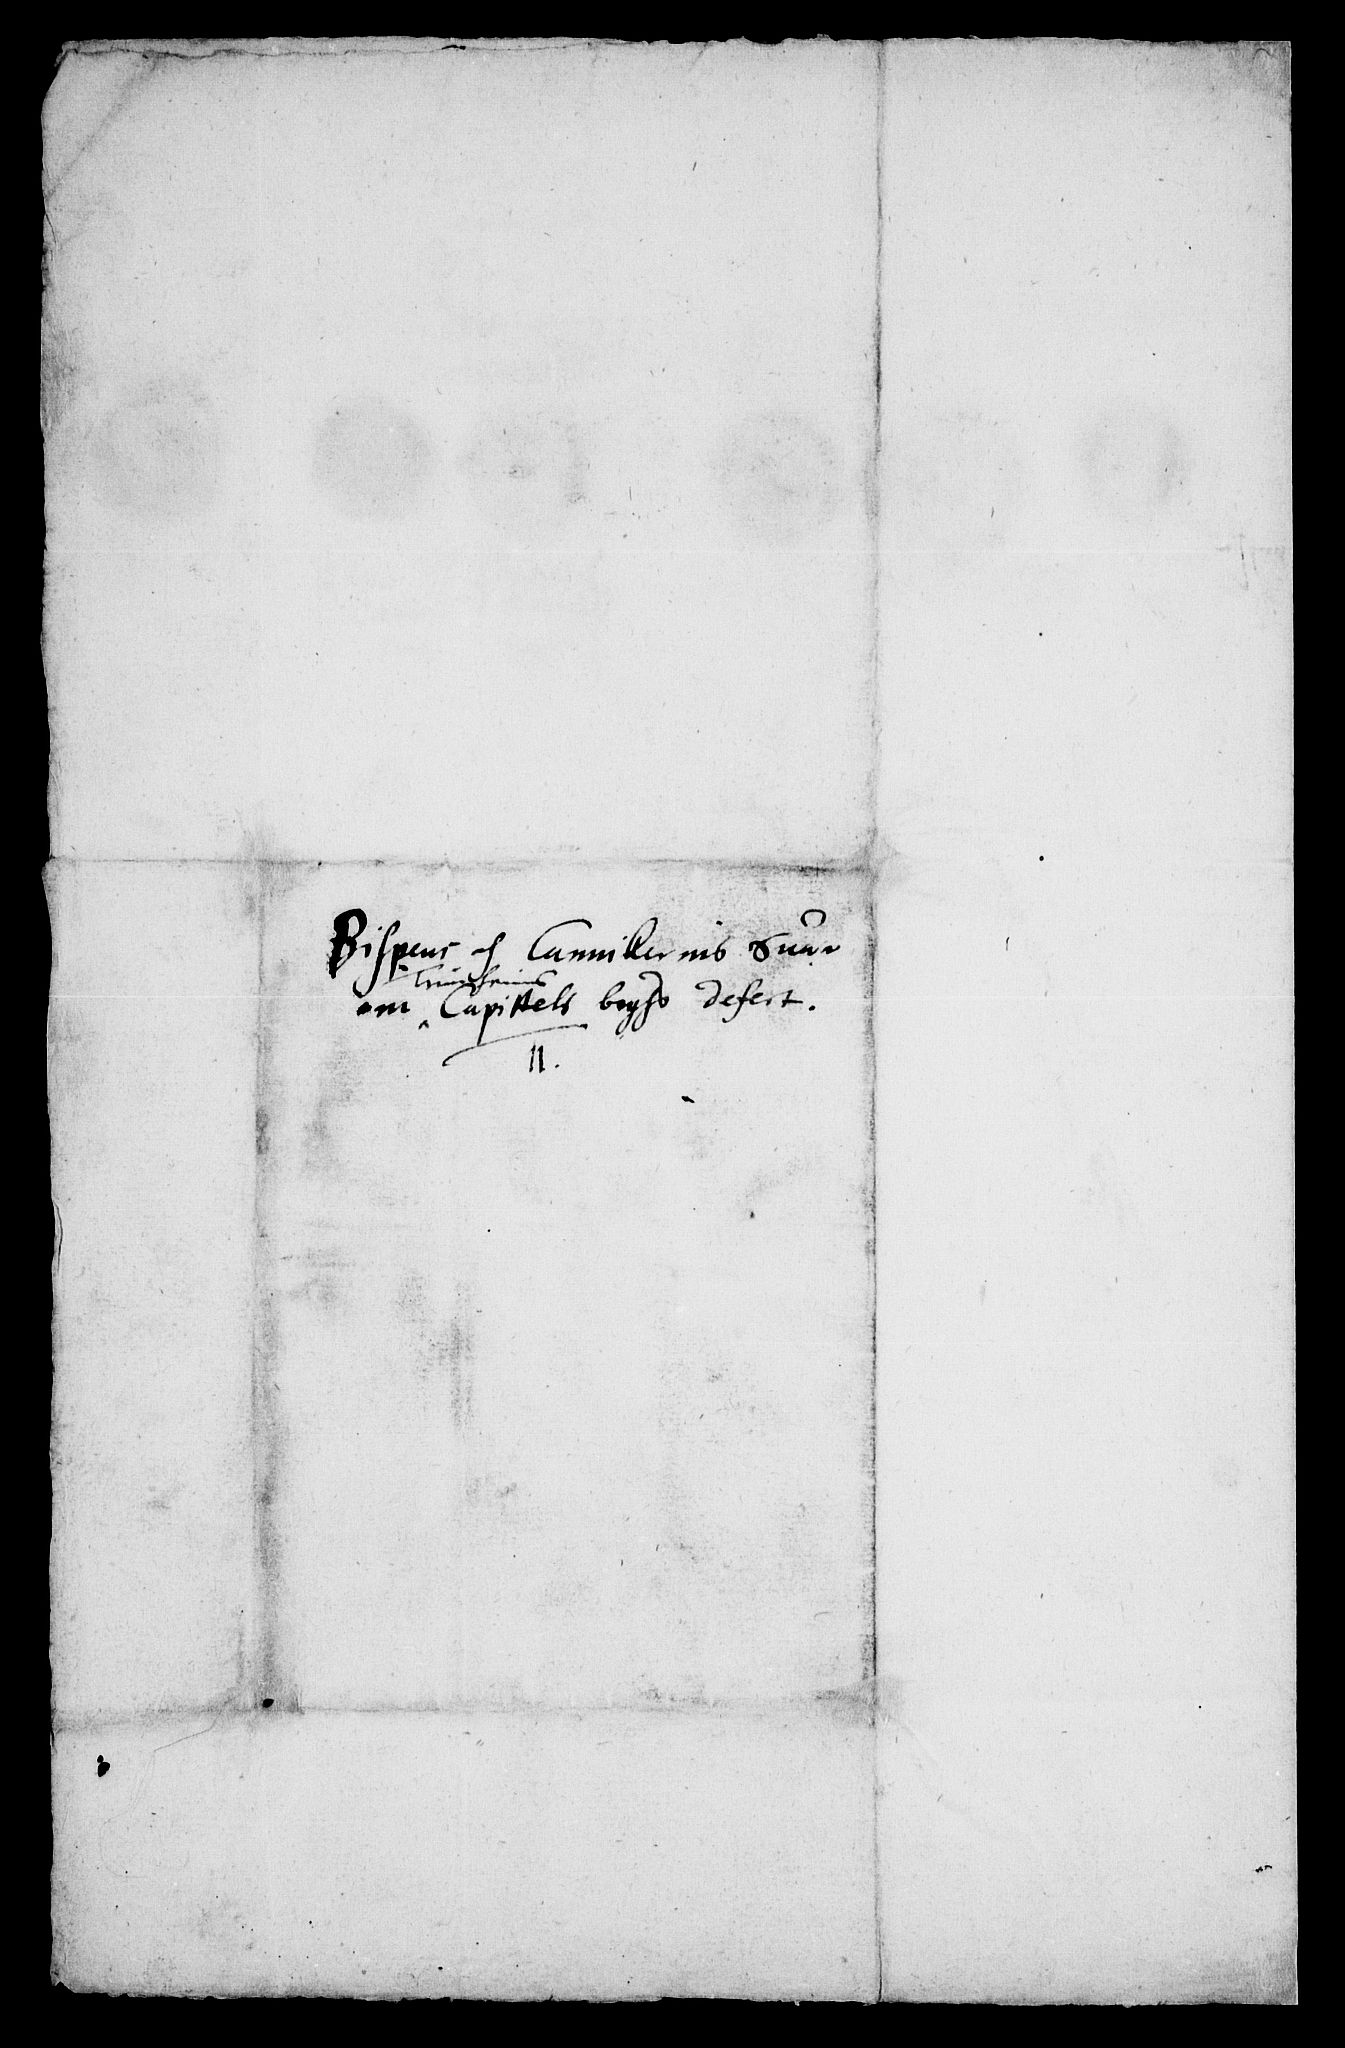 Bispens och Cannikernis Suar
Trundheims
om Capittels bygss defect.
11.